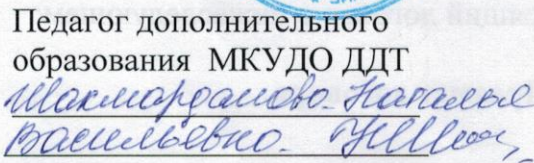 Педагог дополнительного
образования МКУДО ДДТ
Шахморданова Наталья
Васильевна